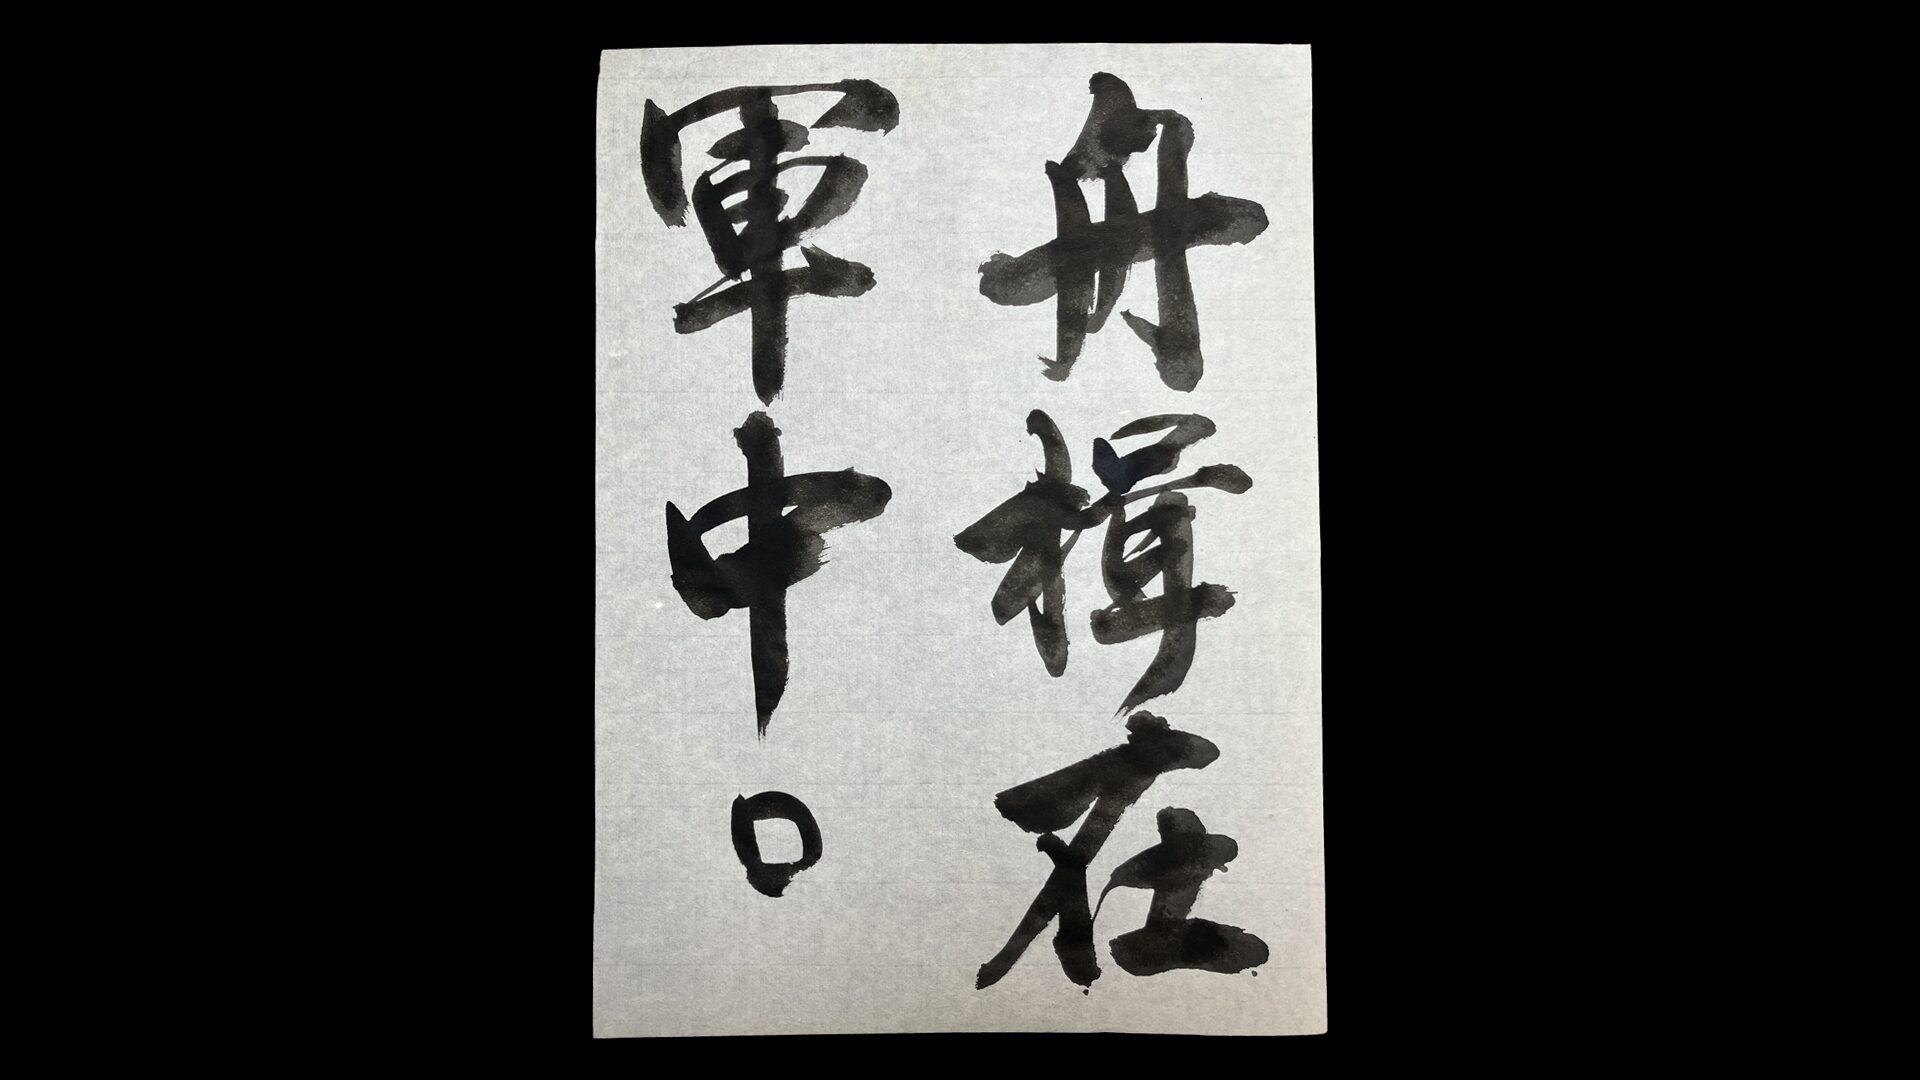 舟楫在
軍中。